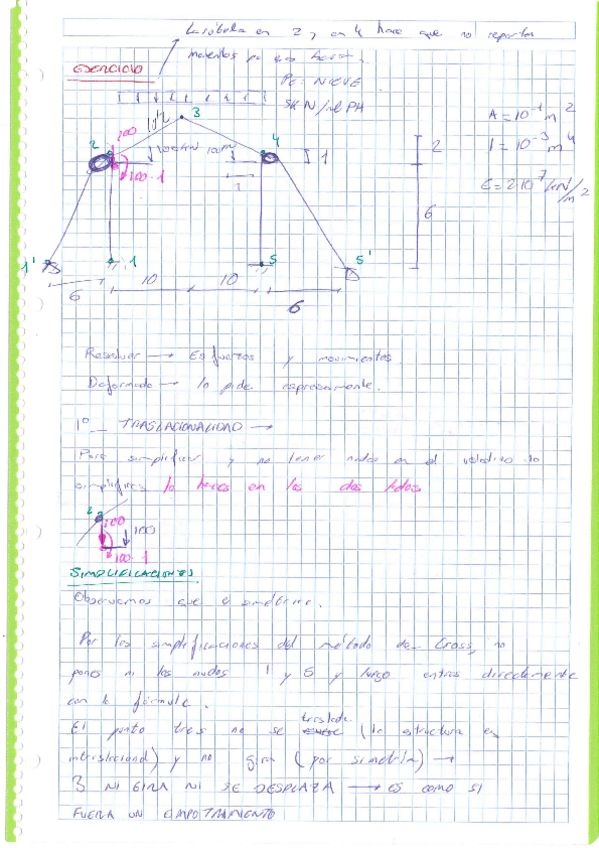 La rótula en 2 y en 4 hace que no reparta
momentos por esa barra.
EJERCICIO
PL: NIEVE
5KN/ml PH
A = 10⁻¹ m²
I = 10⁻³ m⁴
E = 2·10⁷ KN/m²
3
2
100
100 KN
100·1
100
4
1
1
2
6
1'
1
5
5'
6
10
10
6
Resolver → Esfuerzos y movimientos.
Deformada → lo pide expresamente.
1º _ TRASLACIONALIDAD →
Para simplificar y no tener nudos en el voladizo lo
simplificas lo haces en los dos lados
2
100
100
100·1
SIMPLIFICACIONES
Observamos que es simétrica.
Por las simplificaciones del método de Cross, no
pones ni los nudos 1 y 5 y luego entras directamente
con la fórmula.
traslada
El punto tres no se (la estructura es
intraslacional) y no gira (por simetría) →
3 NI GIRA NI SE DESPLAZA → es como si
FUERA UN EMPOTRAMIENTO